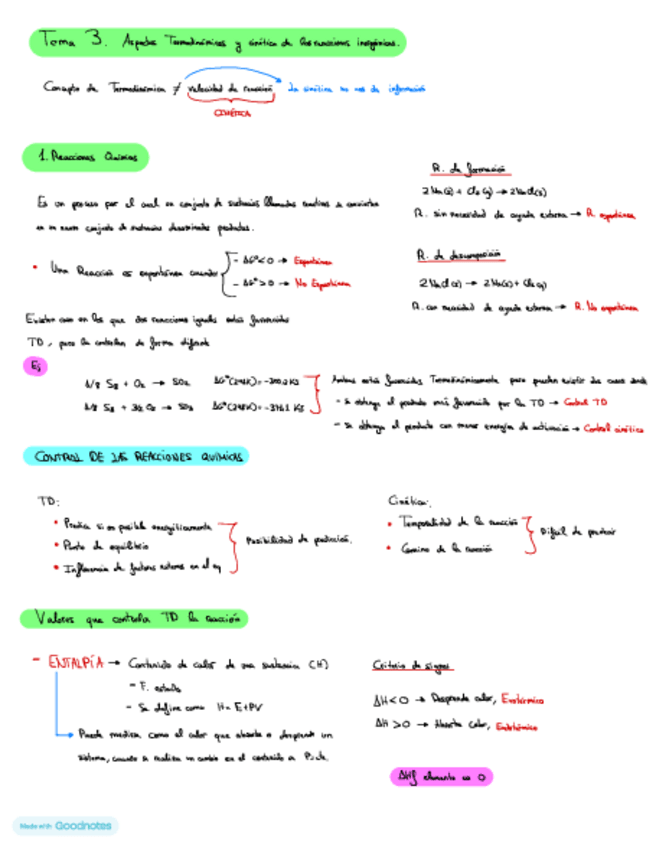 Tema 3. Aspectos Termodinámicos y cinética de las reacciones inorgánicas.
Concepto de Termodinámica ≠ velocidad de reacción → La cinética no nos da información
CINÉTICA
1. Reacciones Químicas
Es un proceso por el cual un conjunto de sustancias llamadas reactivos se convierten
en un nuevo conjunto de sustancias denominadas productos.
• Una Reacción es espontánea cuando
- ΔG°<0 → Espontánea
- ΔG°>0 → No Espontánea
R. de formación
2Na(s) + Cl2(g) → 2NaCl(s)
R. sin necesidad de ayuda externa → R. espontánea
R. de descomposición
2NaCl(s) → 2Na(s) + Cl2(g)
R. con necesidad de ayuda externa → R. No espontánea
Existen casos en los que dos reacciones iguales están favorecidas
TD, pero se controlan de forma diferente
Ej
1/8 S8 + O2 → SO2 ΔG°(298K)=-300,2 KJ
1/8 S8 + 3/2 O2 → SO3 ΔG°(298K)=-371,1 KJ
Ambas están favorecidas Termodinámicamente pero pueden existir dos casos donde
- se obtenga el producto más favorecido por la TD → Control TD
- Se obtenga el producto con menor energía de activación → Control cinético
CONTROL DE LAS REACCIONES QUÍMICAS
TD:
• Predice si es posible energéticamente
• Punto de equilibrio
• Influencia de factores externos en el eq
Posibilidad de predicción.
Cinética:
• Temporalidad de la reacción
• Camino de la reacción
Difícil de predecir
Valores que controla TD la reacción
- ENTALPÍA → Contenido de calor de una sustancia (H)
- F. estado
- Se define como H = E+PV
Puede medirse como el calor que absorbe o desprende un
sistema, cuando se realiza un cambio en el contenido a P cte.
Criterio de signos
ΔH<0 → Desprende calor, Exotérmico
ΔH>0 → Absorbe calor, Endotérmico
ΔHf elemento es 0
Made with Goodnotes